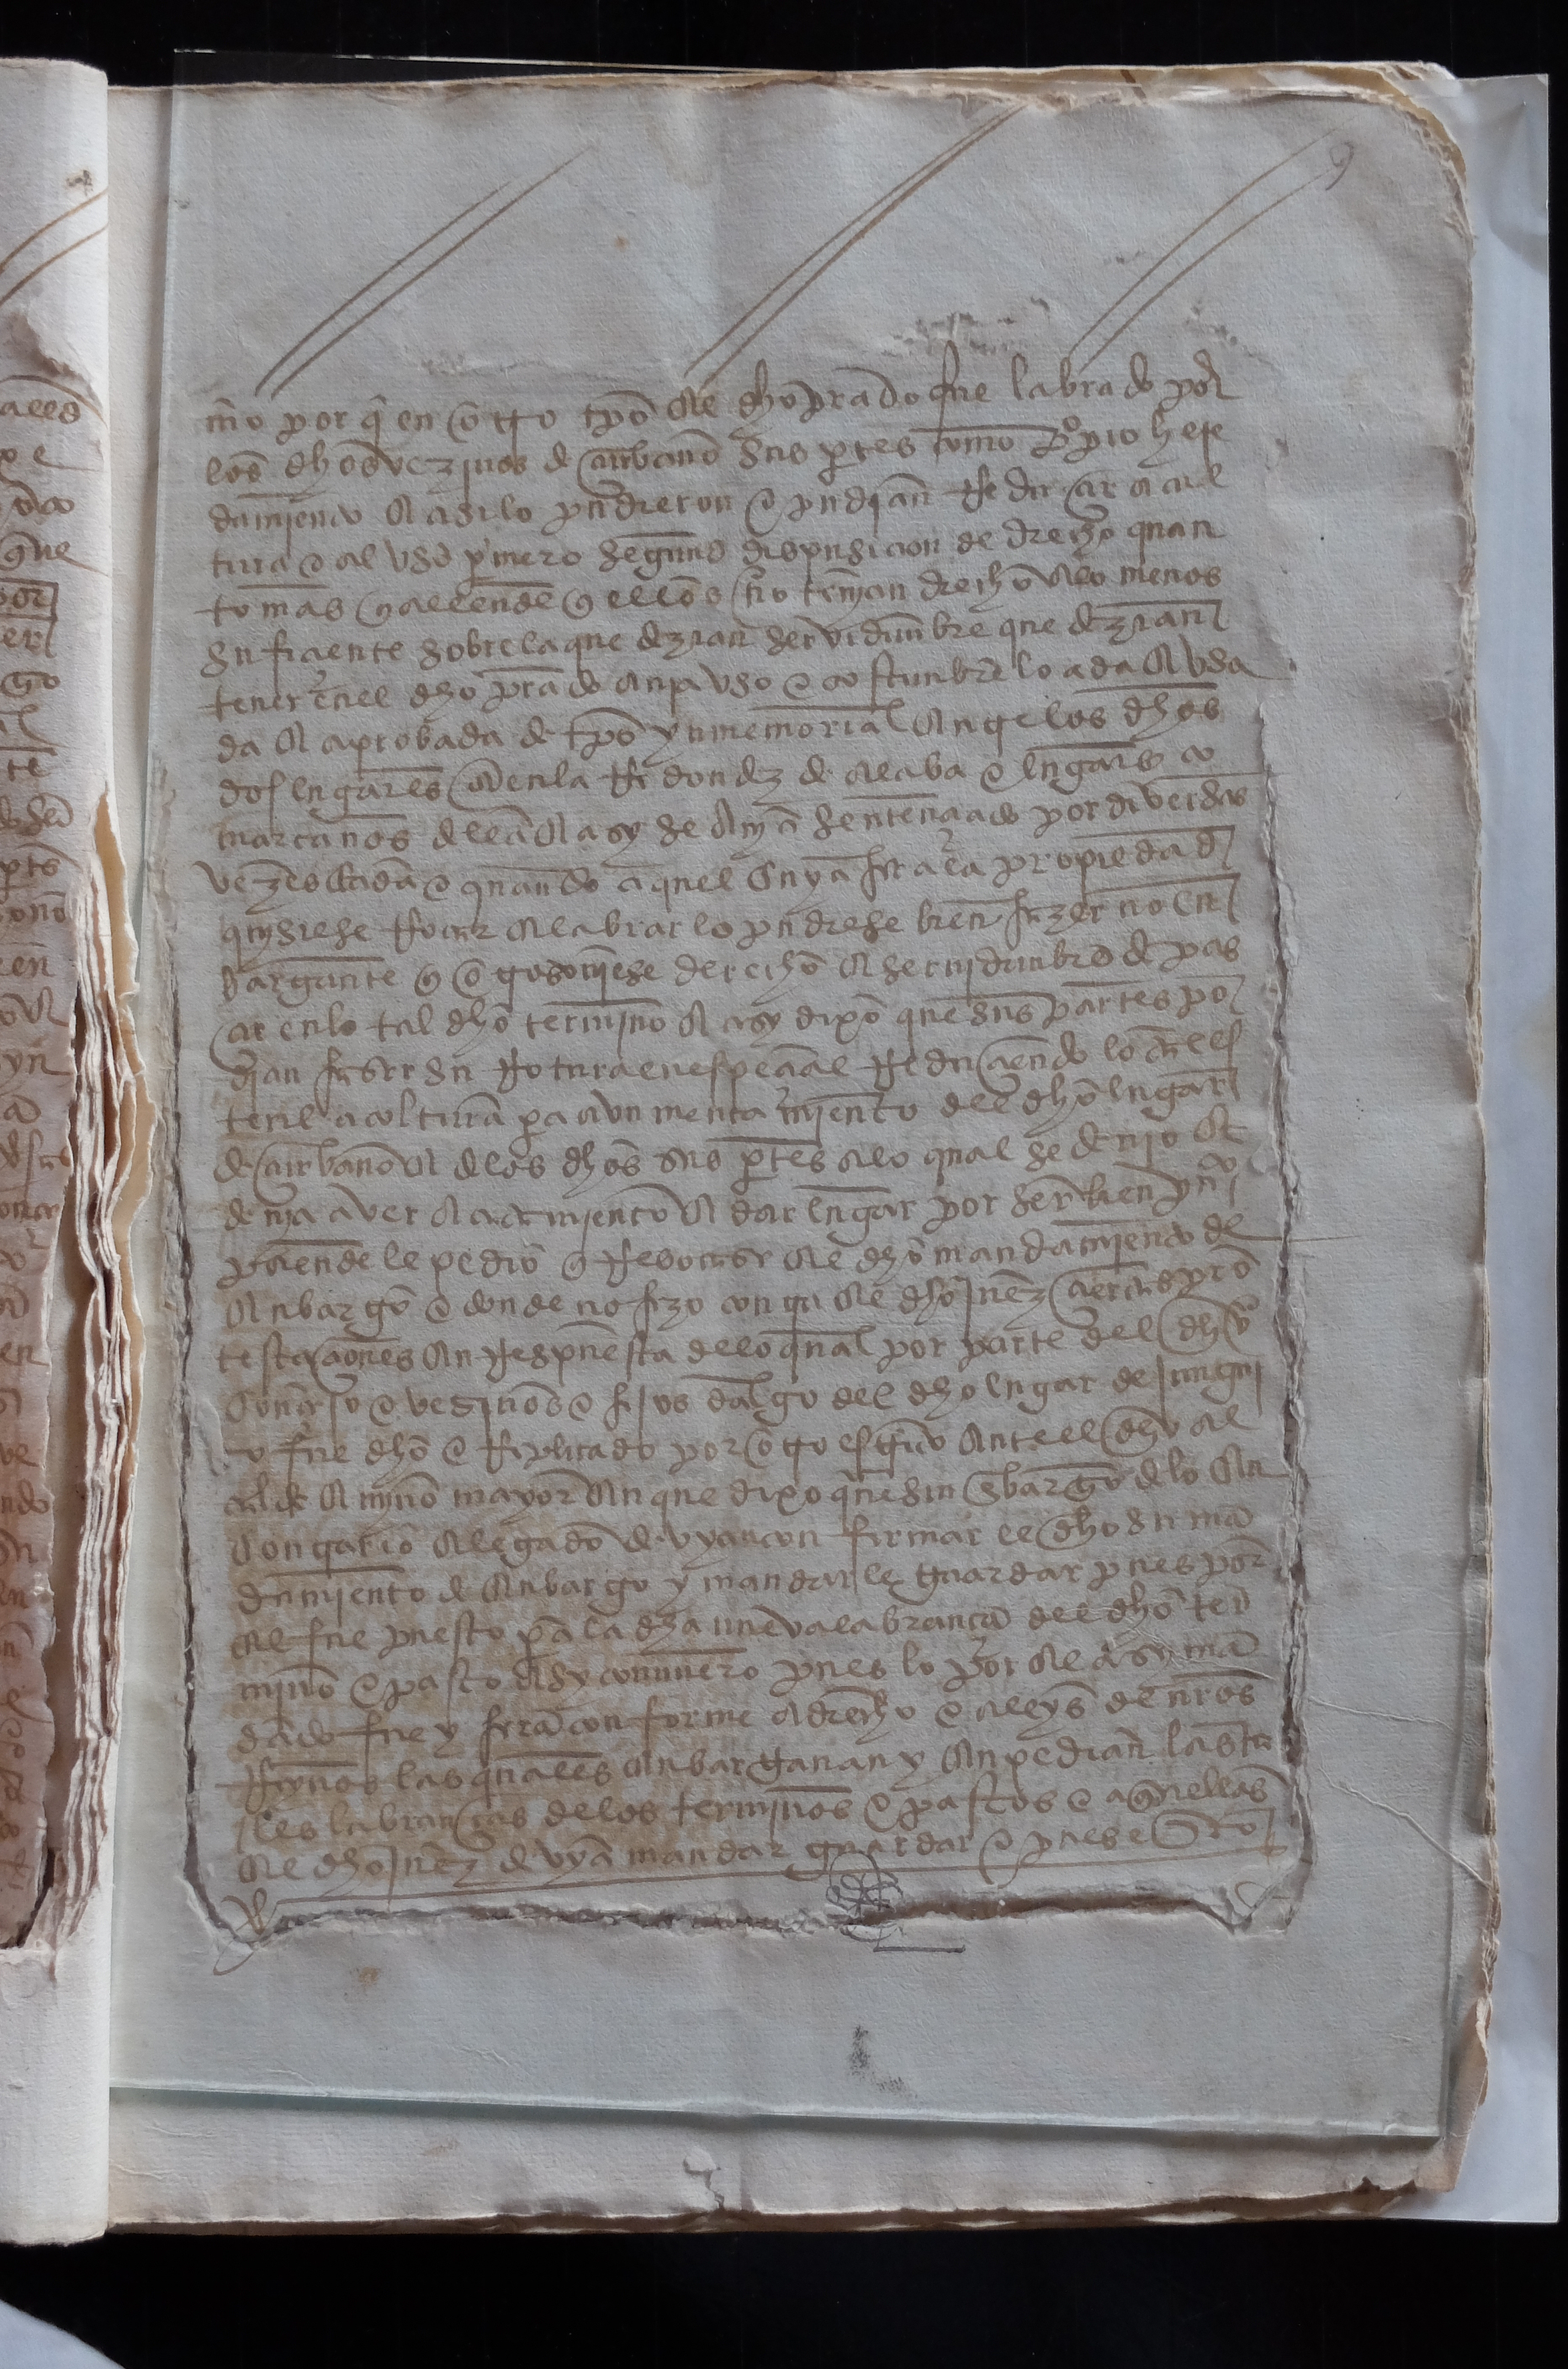 9
mio por q̃ en otro tpõ el dho prado fue labrado por
los dhos vezinos de curbano sus partes como propio here
damiento e asi lo pudieron e pudian reducir a cul
tura e al uso primero segund dispusicion de drecho quan
to mas q allende q ellos no tenian drecho alo menos
suficiente sobre la que dezian servidunbre que dezian
tener en el dho prado en pa uso e costunbre loada e usa
da e aprobada de tpõ ynmemorial en q̃ los dhos
dos lugares en la redondez de alaba e lugares co
marcanos della e asy se avia sentenciado por diversas
vezes cada e quando aquel cuya fuera la propiedad
quisiese roçar e labrar lo pudiese bien fazer no en
bargante q otros oviese derecho e servidunbre de pas
çer en lo tal dho termino e asy dixo que sus partes po
dian fazer su rotura en especial reduciendo lo
a coltura para aumentamiento del dho lugar
de curbano e de los dhos sus partes alo qual se devio e
devia aver acatamiento e dar lugar por ser bien
por ende le pedio q revocase el dho mandamiento de
enbargo e donde no fizo contra el dho juez ciertas pro
testaciones en respuesta delo qual por parte del dho
concejo e vesinos e fijos dalgo del dho lugar de jungui
tu fue dho e replicado por otro escrito ante el dho al
calde e meyno mayor en que dixo que sin enbargo de lo en
contrario alegado devya confirmar el dho su man
damiento de enbargo y mandarle guardar pues por
el fue puesto para la dha nueva labrança del dho ter
mino e pasto asy comunero pues lo por el asy man
dado fue y sera conforme a drecho e a leys de nros
reynos las quales enbargavan y enpedian las ta
les labranças delos terminos e pastos e aquellas
el dho juez devya mandar guardar e pues esto